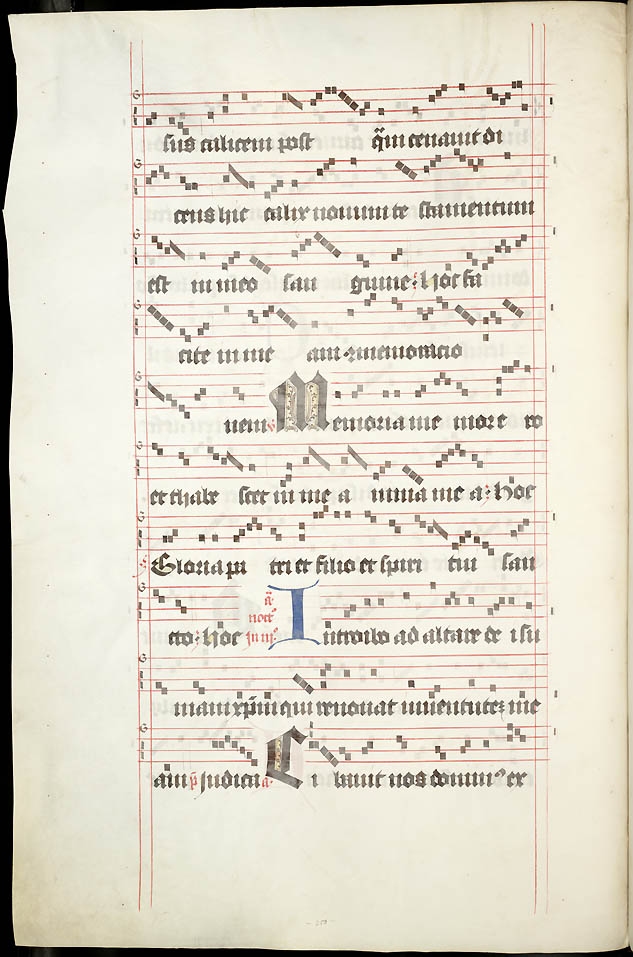 sus calicem post q̄m cenauit di
cens hic calix nouum te stamentum
est in meo san guine: hoc fa
cite in me am 
nem Memoria me mor e ro
et thabe scet in me a nima me a: hoc
Gloria pa tri et filio et spiri tui san
cto: hoc
Introibo ad altare de i su
mam xp̄m qui renouat iuuentutē me
am p̄s Judica a Ci bauit nos domin9 ex